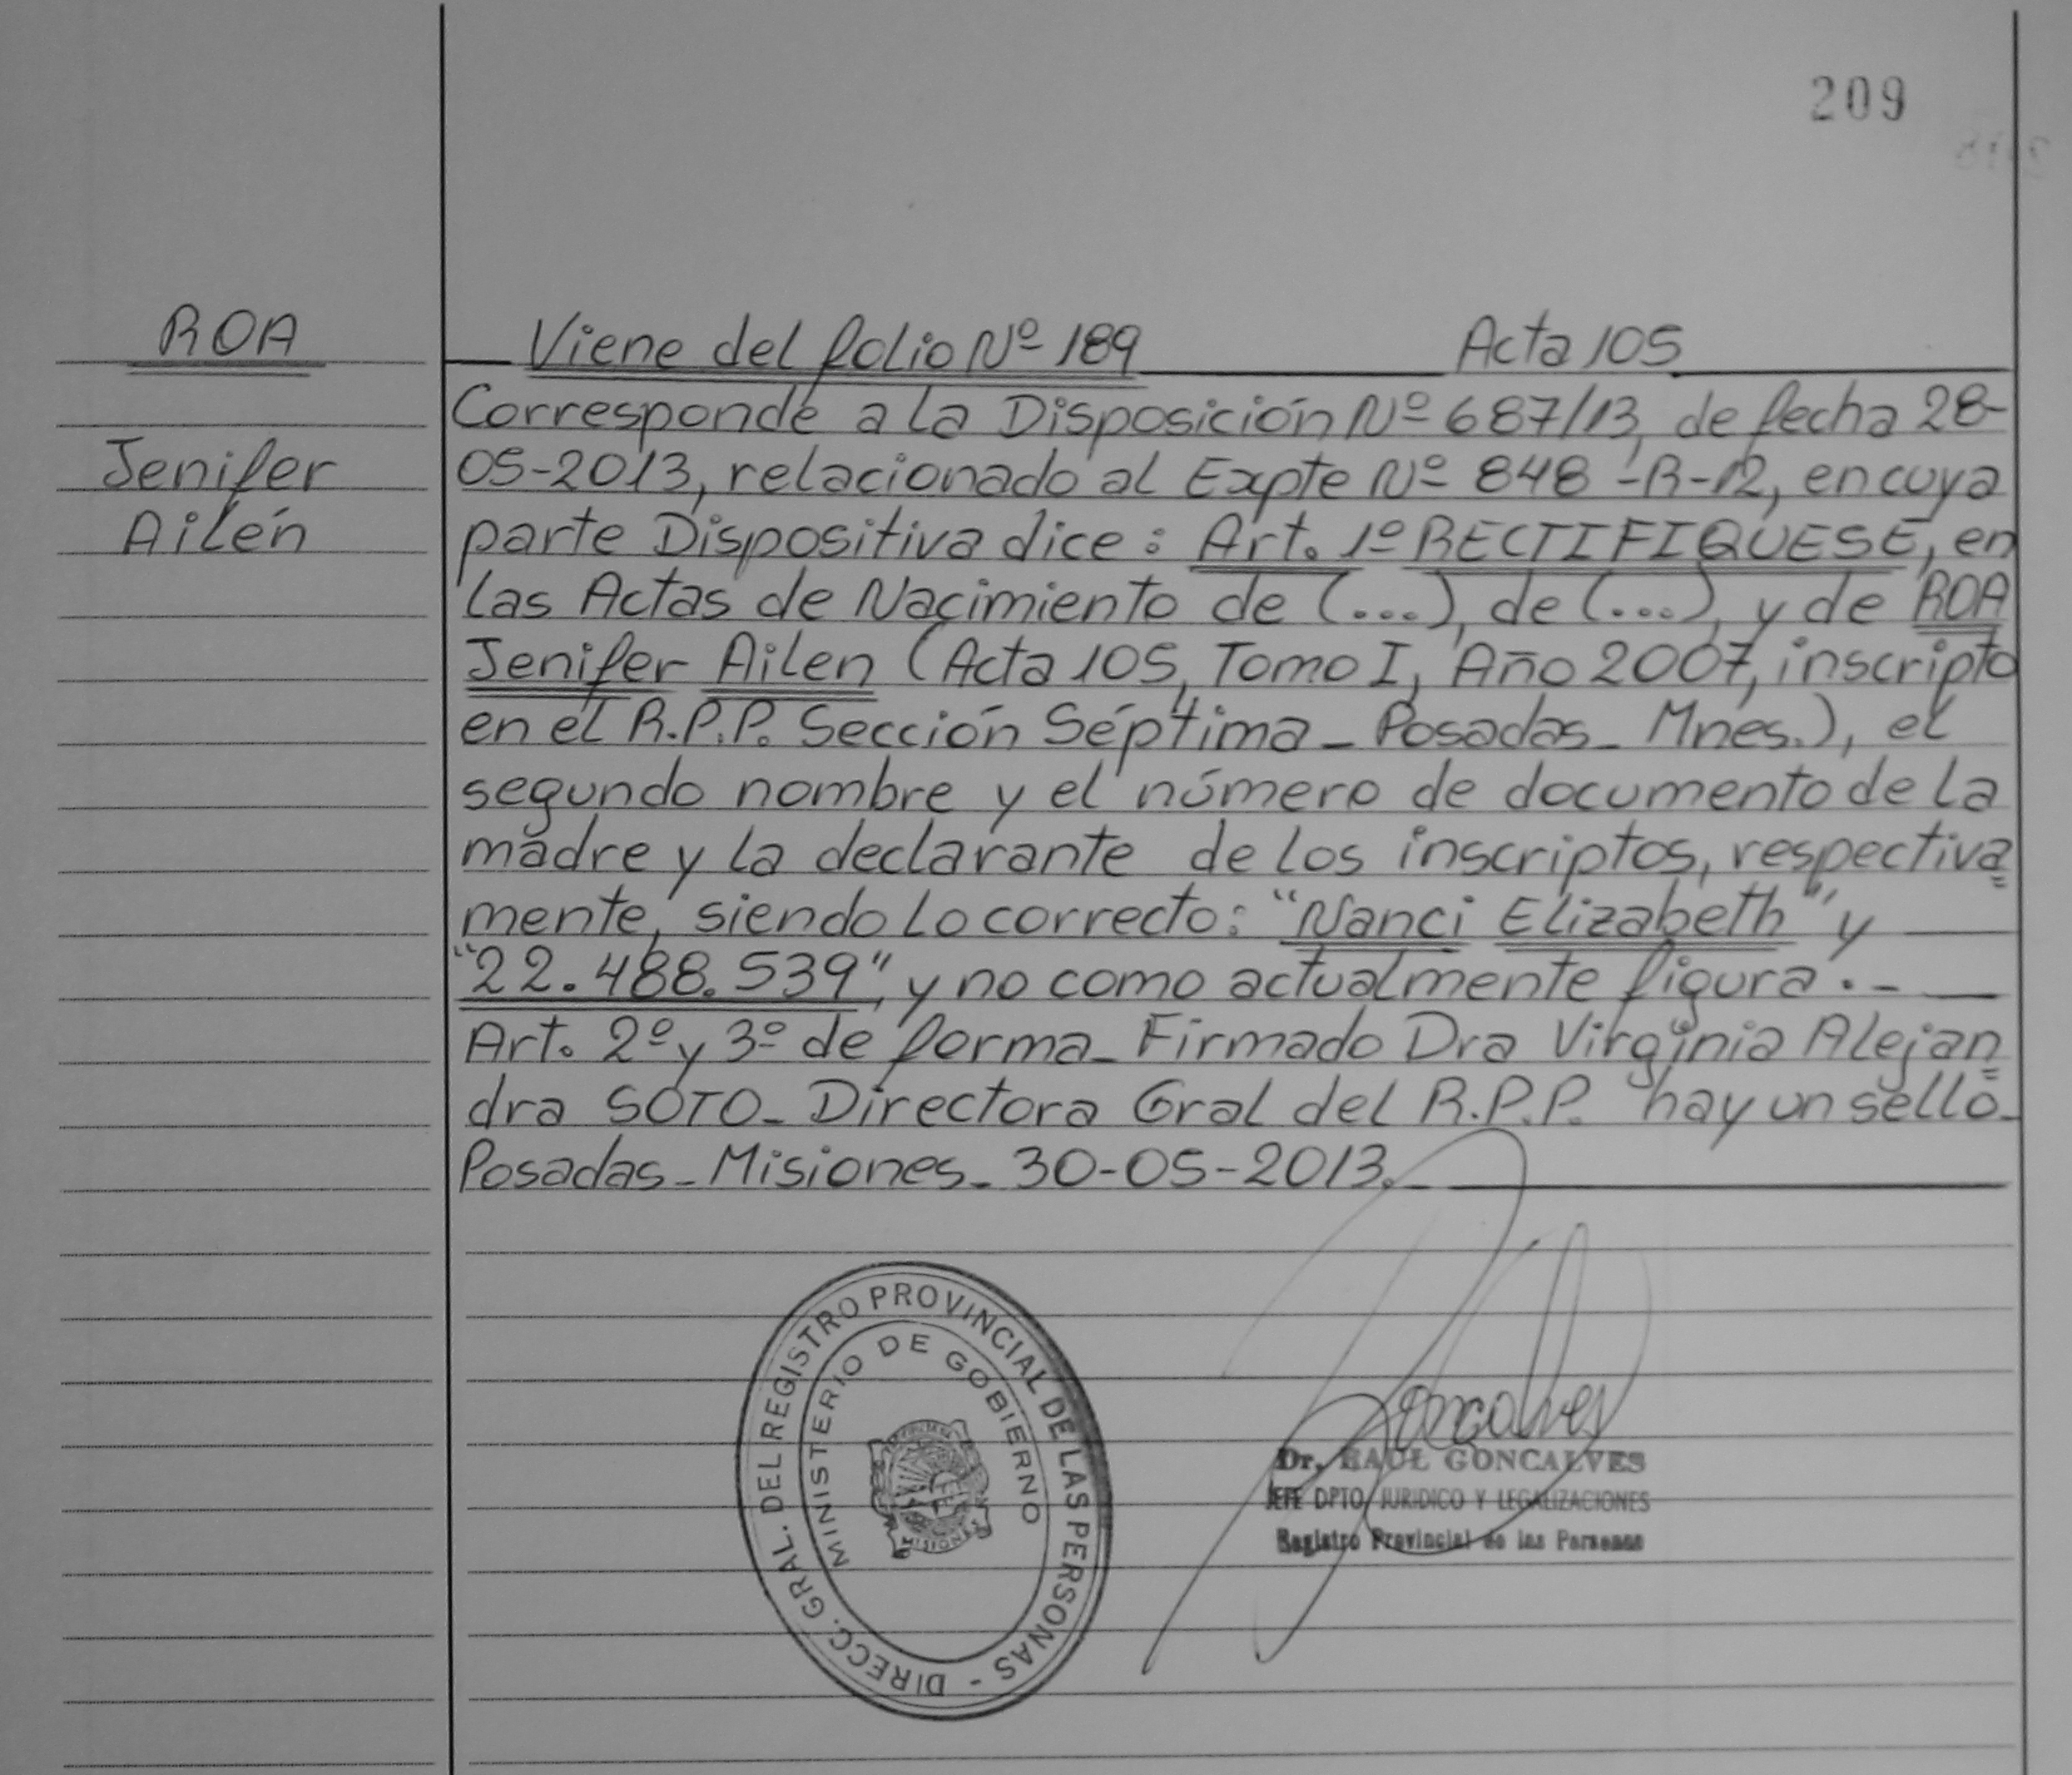 209
ROA
Jenifer
Ailén
Viene del folio Nº 189 Acta 105
Corresponde a la Disposición Nº 687/13, de fecha 28-
05-2013, relacionado al Expte Nº 848-R-12, en cuya
parte Dispositiva dice: Art. 1º RECTIFIQUESE, en
las Actas de Nacimiento de (...), de (...), y de ROA
Jenifer Ailen (Acta 105, Tomo I, Año 2007, inscripto
en el R.P.P. Sección Séptima - Posadas - Mnes.), el
segundo nombre y el número de documento de la
madre y la declarante de los inscriptos, respectiva=
mente, siendo lo correcto: "Nanci Elizabeth" y
"22.488.539", y no como actualmente figura.-
Art. 2º y 3º de forma - Firmado Dra Virginia Alejan=
dra SOTO - Directora Gral del R.P.P. hay un sello-
Posadas - Misiones - 30-05-2013.
DIRECC. GRAL. DEL REGISTRO PROVINCIAL DE LAS PERSONAS -
MINISTERIO DE GOBIERNO
MISIONES
Goncalves
Dr. RAUL GONCALVES
JEFE DPTO JURIDICO Y LEGALIZACIONES
Registro Provincial de las Personas